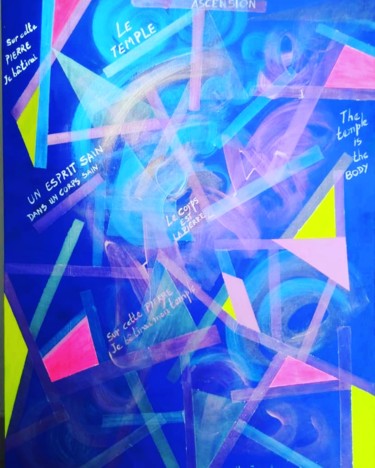 ASCENSION
LE
TEMPLE
Sur cette
PIERRE
Je bâtirai
The
temple
IS
the
BODY
UN ESPRIT SAIN
DANS UN CORPS SAIN
Le corps
EST
Sur cette PIERRE
Je bâtirai mon temple